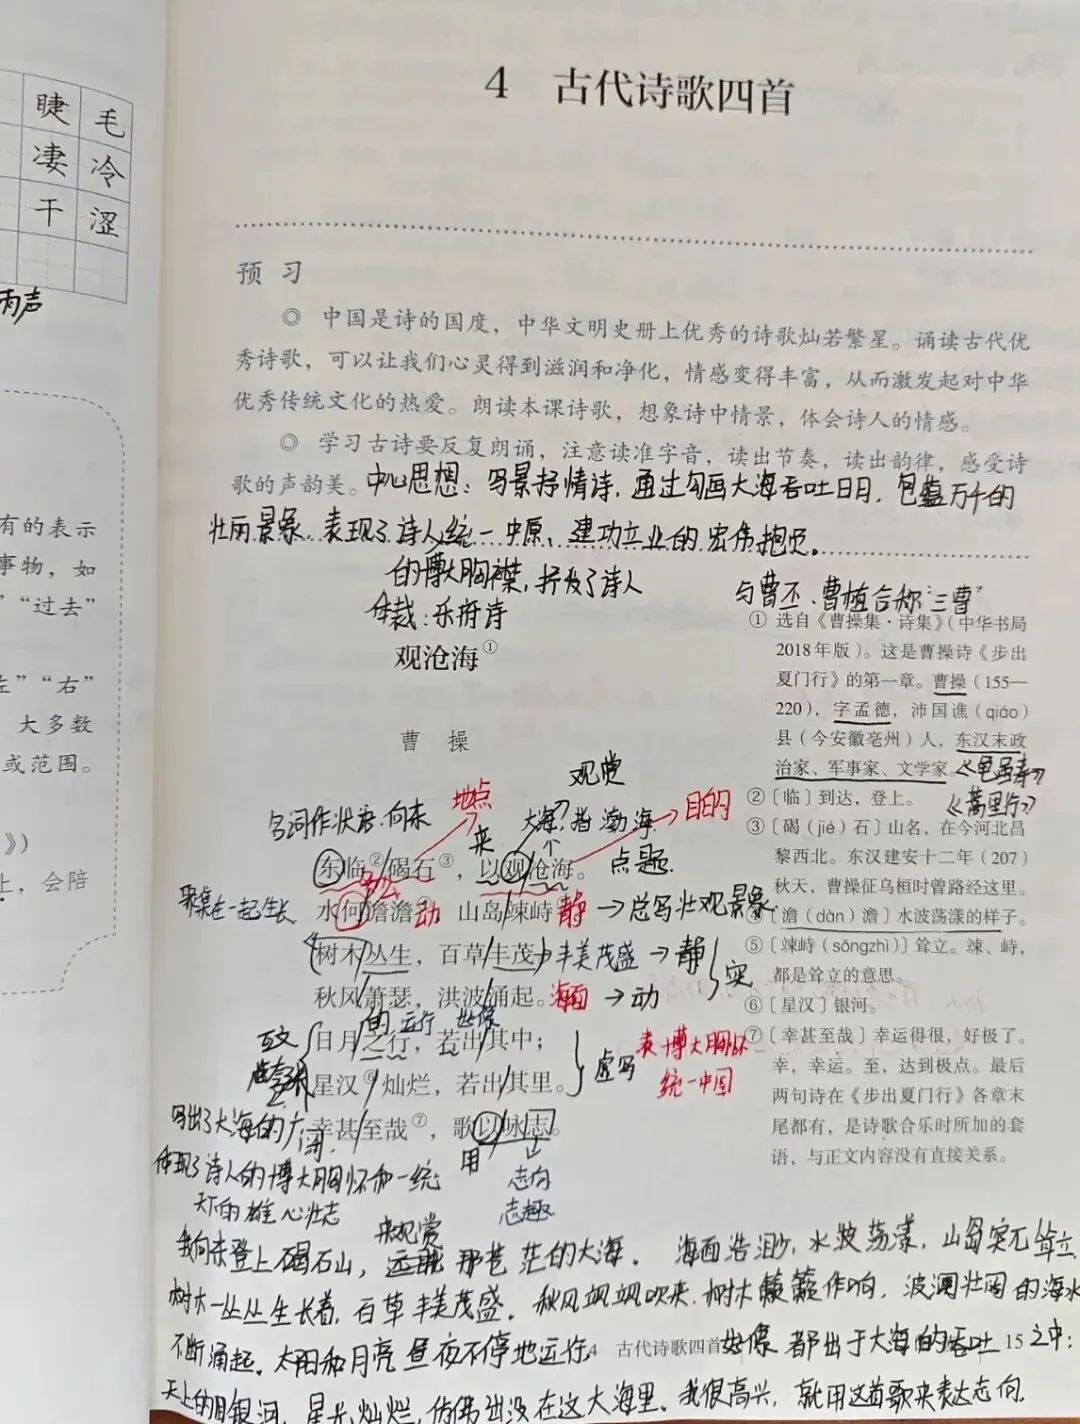 睫毛
凄冷
干涩
两声
有的表示
事物，如
”“过去”
左”“右”
大多数
或范围。
》）
上，会陪
4 古代诗歌四首
预习
◎ 中国是诗的国度，中华文明史册上优秀的诗歌灿若繁星。诵读古代优
秀诗歌，可以让我们心灵得到滋润和净化，情感变得丰富，从而激发起对中华
优秀传统文化的热爱。朗读本课诗歌，想象诗中情景，体会诗人的情感。
◎ 学习古诗要反复朗诵，注意读准字音，读出节奏，读出韵律，感受诗
歌的声韵美。中心思想：写景抒情诗，通过勾画大海吞吐日月，包蕴万千的
壮丽景象，表现了诗人统一中原、建功立业的宏伟抱负。
的博大胸襟，抒发了诗人
体裁：乐府诗
观沧海①
曹操
观赏
名词作状语，向东
地点
来
大海，指渤海
目的
点题
东临②碣石③，以观沧海。
聚集在一起生长
水何澹澹④动 山岛竦峙⑤静→总写壮观景象
多么
树木丛生，百草丰茂，丰美茂盛→静
实
秋风萧瑟，洪波涌起。海面→动
的 运行 好像
互文
日月之行，若出其中；
虚写
表博大胸怀
统一中国
星汉⑥灿烂，若出其里。
写出了大海的广阔，
幸甚至哉⑦，歌以咏志。
用
志向
志趣
体现了诗人的博大胸怀和一统
天下的雄心壮志
与曹丕、曹植合称“三曹”
① 选自《曹操集·诗集》（中华书局
2018年版）。这是曹操诗《步出
夏门行》的第一章。曹操（155—
220），字孟德，沛国谯（qiáo）
县（今安徽亳州）人，东汉末政
治家、军事家、文学家。《龟虽寿》
《蒿里行》
②〔临〕到达，登上。
③〔碣（jié）石〕山名，在今河北昌
黎西北。东汉建安十二年（207）
秋天，曹操征乌桓时曾路经这里。
④〔澹（dàn）澹〕水波荡漾的样子。
⑤〔竦峙（sǒngzhì）〕耸立。竦、峙，
都是耸立的意思。
⑥〔星汉〕银河。
⑦〔幸甚至哉〕幸运得很，好极了。
幸，幸运。至，达到极点。最后
两句诗在《步出夏门行》各章末
尾都有，是诗歌合乐时所加的套
语，与正文内容没有直接关系。
来观赏
我向东登上碣石山，那苍茫的大海。海面浩渺，水波荡漾，山岛突兀耸立，
树木一丛丛生长着，百草丰美茂盛。秋风飒飒吹来，树木簌簌作响，波澜壮阔的海水
不断涌起。太阳和月亮昼夜不停地运行，好像都出于大海的吞吐之中；
4 古代诗歌四首 15
天上的银河，星光灿烂，仿佛出没在这大海里。我很高兴，就用这首歌来表达志向